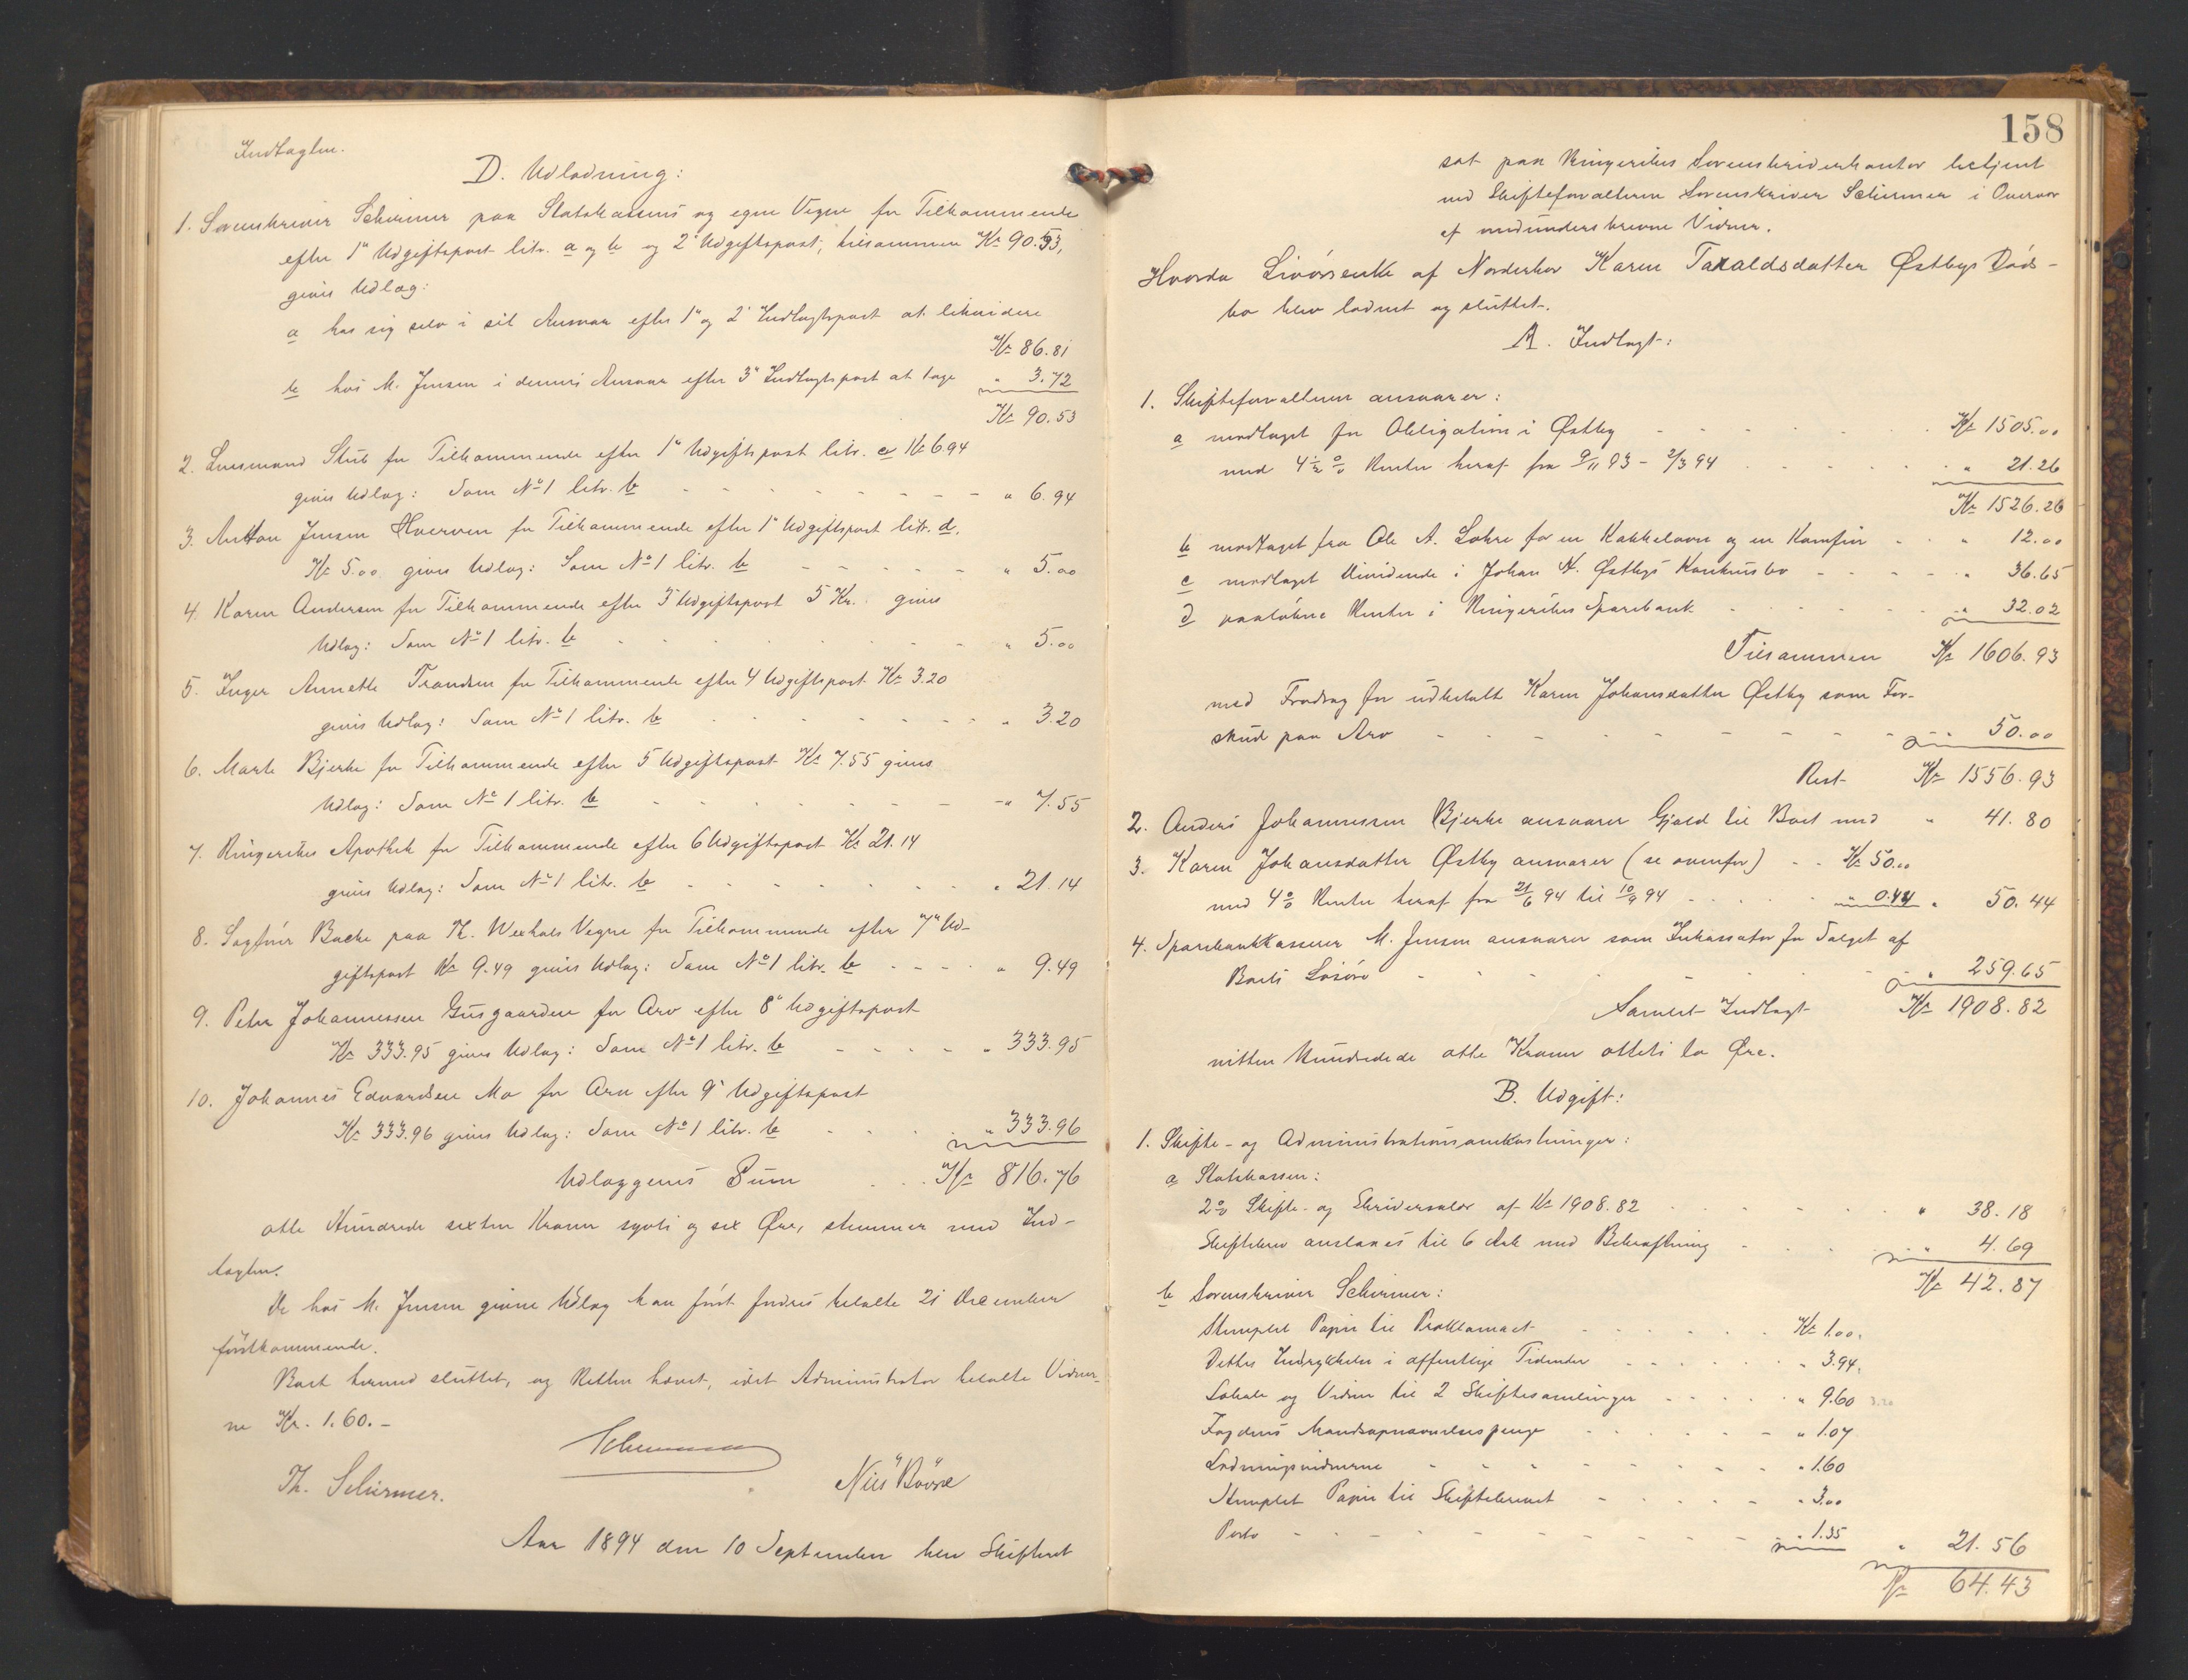 Indtagten.
D. Udlodning:
1. Sorenskriver Schirmer paa Statskassens og egne Vegne for Tilkommende
efter 1ste Udgiftspost litr. a og b og 2den Udgiftspost, tilsammen Kr 90.53,
gives Udlæg:
a hos sig selv i sit Ansvar efter 1ste og 2den Indtægtspost at likvidere
Kr 86.81
b hos M. Jensen i dennes Ansvar efter 3die Indtægtspost at tage " 3.72
Kr 90.53
2. Lensmand Stub for Tilkommende efter 1ste Udgiftspost litr. c Kr 6.94
gives Udlæg: Som No 1 litr. b - - - " 6.94
3. Anton Jensen Hverven for Tilkommende efter 1ste Udgiftspost litr. d.
Kr 5.00 gives Udlæg: Som No 1 litr. b - - - " 5.00
4. Karen Andersen for Tilkommende efter 3die Udgiftspost 5 Kr. gives
Udlæg: Som No 1 litr. b - - - " 5.00
5. Inger Annette Trondsen for Tilkommende efter 4 Udgiftspost Kr 3.20
gives Udlæg: Som No 1 litr. b - - - " 3.20
6. Marte Bjerke for Tilkommende efter 5 Udgiftspost Kr 7.55 gives
Udlæg: Som No 1 litr. b - - - " 7.55
7. Ringerikes Apothek for Tilkommende efter 6 Udgiftspost Kr 21.14
gives Udlæg: Som No 1 litr. b - - - " 21.14
8. Sagfører Backe paa Th. Wexhals Vegne for Tilkommende efter 7de Ud-
giftspost Kr 9.49 gives Udlæg: Som No 1 litr. b - - - " 9.49
9. Peter Johannessen Gusgaarden for Arv efter 8de Udgiftspost
Kr 333.95 gives Udlæg: Som No 1 litr. b - - - " 333.95
10. Johannes Edvardsen Mo for Arv efter 9de Udgiftspost
Kr 333.96 gives Udlæg: Som No 1 litr. b - - - " 333.96
Udlæggenes Sum . . . Kr 816.76
otte Hundrede sexten Kroner sytti og sex Øre, stemmer med Ind-
tægten.
De hos M. Jensen givne Udlæg kan først fordres betalte 21 December
førstkommende.
Boet hermed sluttet, og Retten hævet, idet Administrator betalte Vidner-
ne Kr. 1.60.-
Schirmer
Th. Schirmer. Nils Børse
Aar 1894 den 10 September blev Skifteret
158
sat paa Ringerikes Sorenskriverkontor betjent
ved Skifteforvalteren Sorenskriver Schirmer i Overvær
af medunderskrevne Vidner.
Hvorda Livørsenke af Norderhov Karen Taraldsdatter Østbys Døds-
bo blev lodnet og sluttet.
A. Indtægt:
1. Skifteforvalteren ansvarer:
a modtaget for Obligation i Østby - - - Kr 1505.00
med 4½ % Renter heraf fra 9/11 93 - 2/3 94 . . . " 21.26
Kr 1526.26
b modtaget fra Ole A. Lohre for en Kakkelovn og en Komfur - - " 12.00
c modtaget Dividende i Johan A. Østbys Konkursbo - - - " 36.65
d paaløbne Renter i Ringerikes Sparebank - - - " 32.02
Tilsammen Kr 1606.93
med Fradrag for udbetalt Karen Johansdatter Østby som For-
skud paa Arv - - - " 50.00
Rest Kr 1556.93
2. Anders Johannessen Bjerke ansvarer Gjæld til Boet med " 41.80
3. Karen Johansdatter Østby ansvarer (se ovenfor) - - Kr 50.00
med 4 % Renter heraf fra 21/6 94 til 10/9 94 . . . " 0.44 " 50.44
4. Sparebankkasserer M. Jensen ansvarer som Inkassator for Salget af
Boets Løsøre - - - " 259.65
Samlet Indtægt Kr 1908.82
nitten Hundrede otte Kroner otteti to Øre.
B. Udgift:
1. Skifte- og Administrationsomkostninger:
a Statskassen:
2 % Skifte- og Skriversalær af Kr 1908.82 - - - " 38.18
Skiftebrev anslaaes til 6 Ark med Bekræftning - - - " 4.69
Kr 42.87
b Sorenskriver Schirmer:
Stemplet Papir til Proklamaet - - - Kr 1.00.
Dettes Indrykkelse i offentlige Tidender - - - " 3.94.
Lokale og Vidner til 2 Skiftesamlinger - - - " 9.60 3.20
Fogdens Mandsopnævnelsespenge - - - " 1.07
Lodningsvidnerne - - - " 1.60
Stemplet Papir til Skiftebrevet - - - " 3.00
Porto - - - " 1.35 " 21.56
Kr 64.43